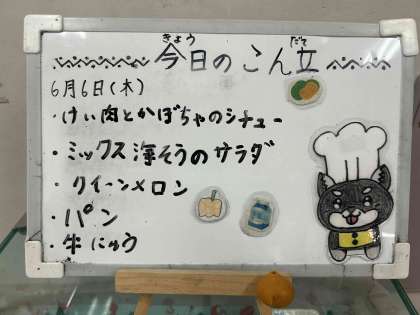 きょう だて
今日のこん立
6月6日(木)
・けい肉とかぼちゃのシチュー
・ミックス海そうのサラダ
・クインシーメロン
・パン
・牛にゅう